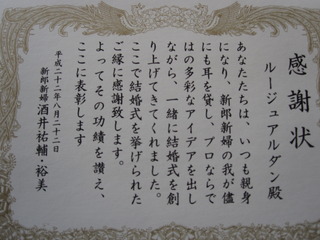 感謝状
ルージュアルダン殿
あなたたちは、いつも親身
になり、新郎新婦の我が儘
にも耳を貸し、プロならで
はの多彩なアイデアを出し
ながら、一緒に結婚式を創
り上げてきてくれました。
ここで結婚式を挙げられた
ご縁に感謝致します。
よってその功績を讃え、
ここに表彰します
平成二十二年八月二十二日
新郎新婦 酒井祐輔・裕美